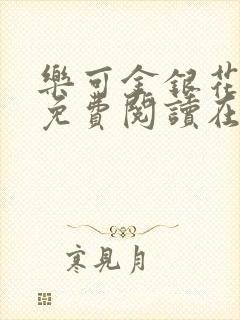 樂可金銀花
免費閱讀在
寒見月